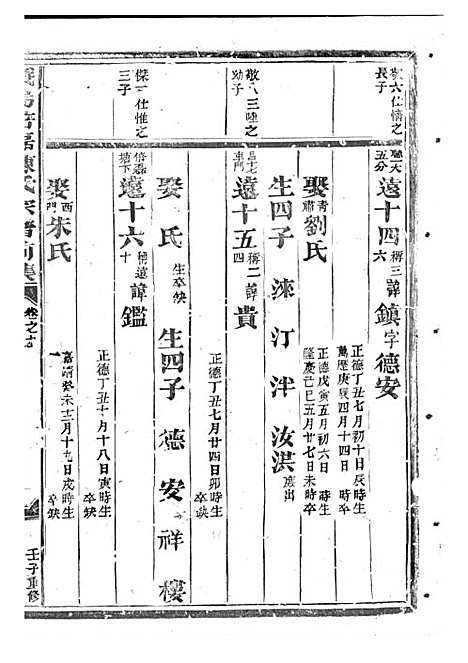 敬六仕情之
長子
五分
遠十四
六
稱三
諱
鎮
字
德安
正德丁丑七月初十日辰時生
萬歷庚辰四月十四日 時卒
娶
青肅
劉氏
正德戊寅五月初六日 時生
隆慶己巳五月廿七日未時卒
生四子 淶 汀 泮 汝洪
庶出
敬八三睦之
幼子
車門
遠十五
四
稱二
諱
貴
正德丁丑七月廿四日卯時生
卒缺
娶 氏
生卒缺
生四子 德 安 祥 樓
傑一仕惟之
三子
塘下
遠十六
十
稱遠
諱
鑑
正德丁丑十月十八日寅時生
卒缺
娶
西門
朱氏
嘉靖癸未十二月十九日戌時生
卒缺
陳氏宗譜前集
卷之
壬子重修